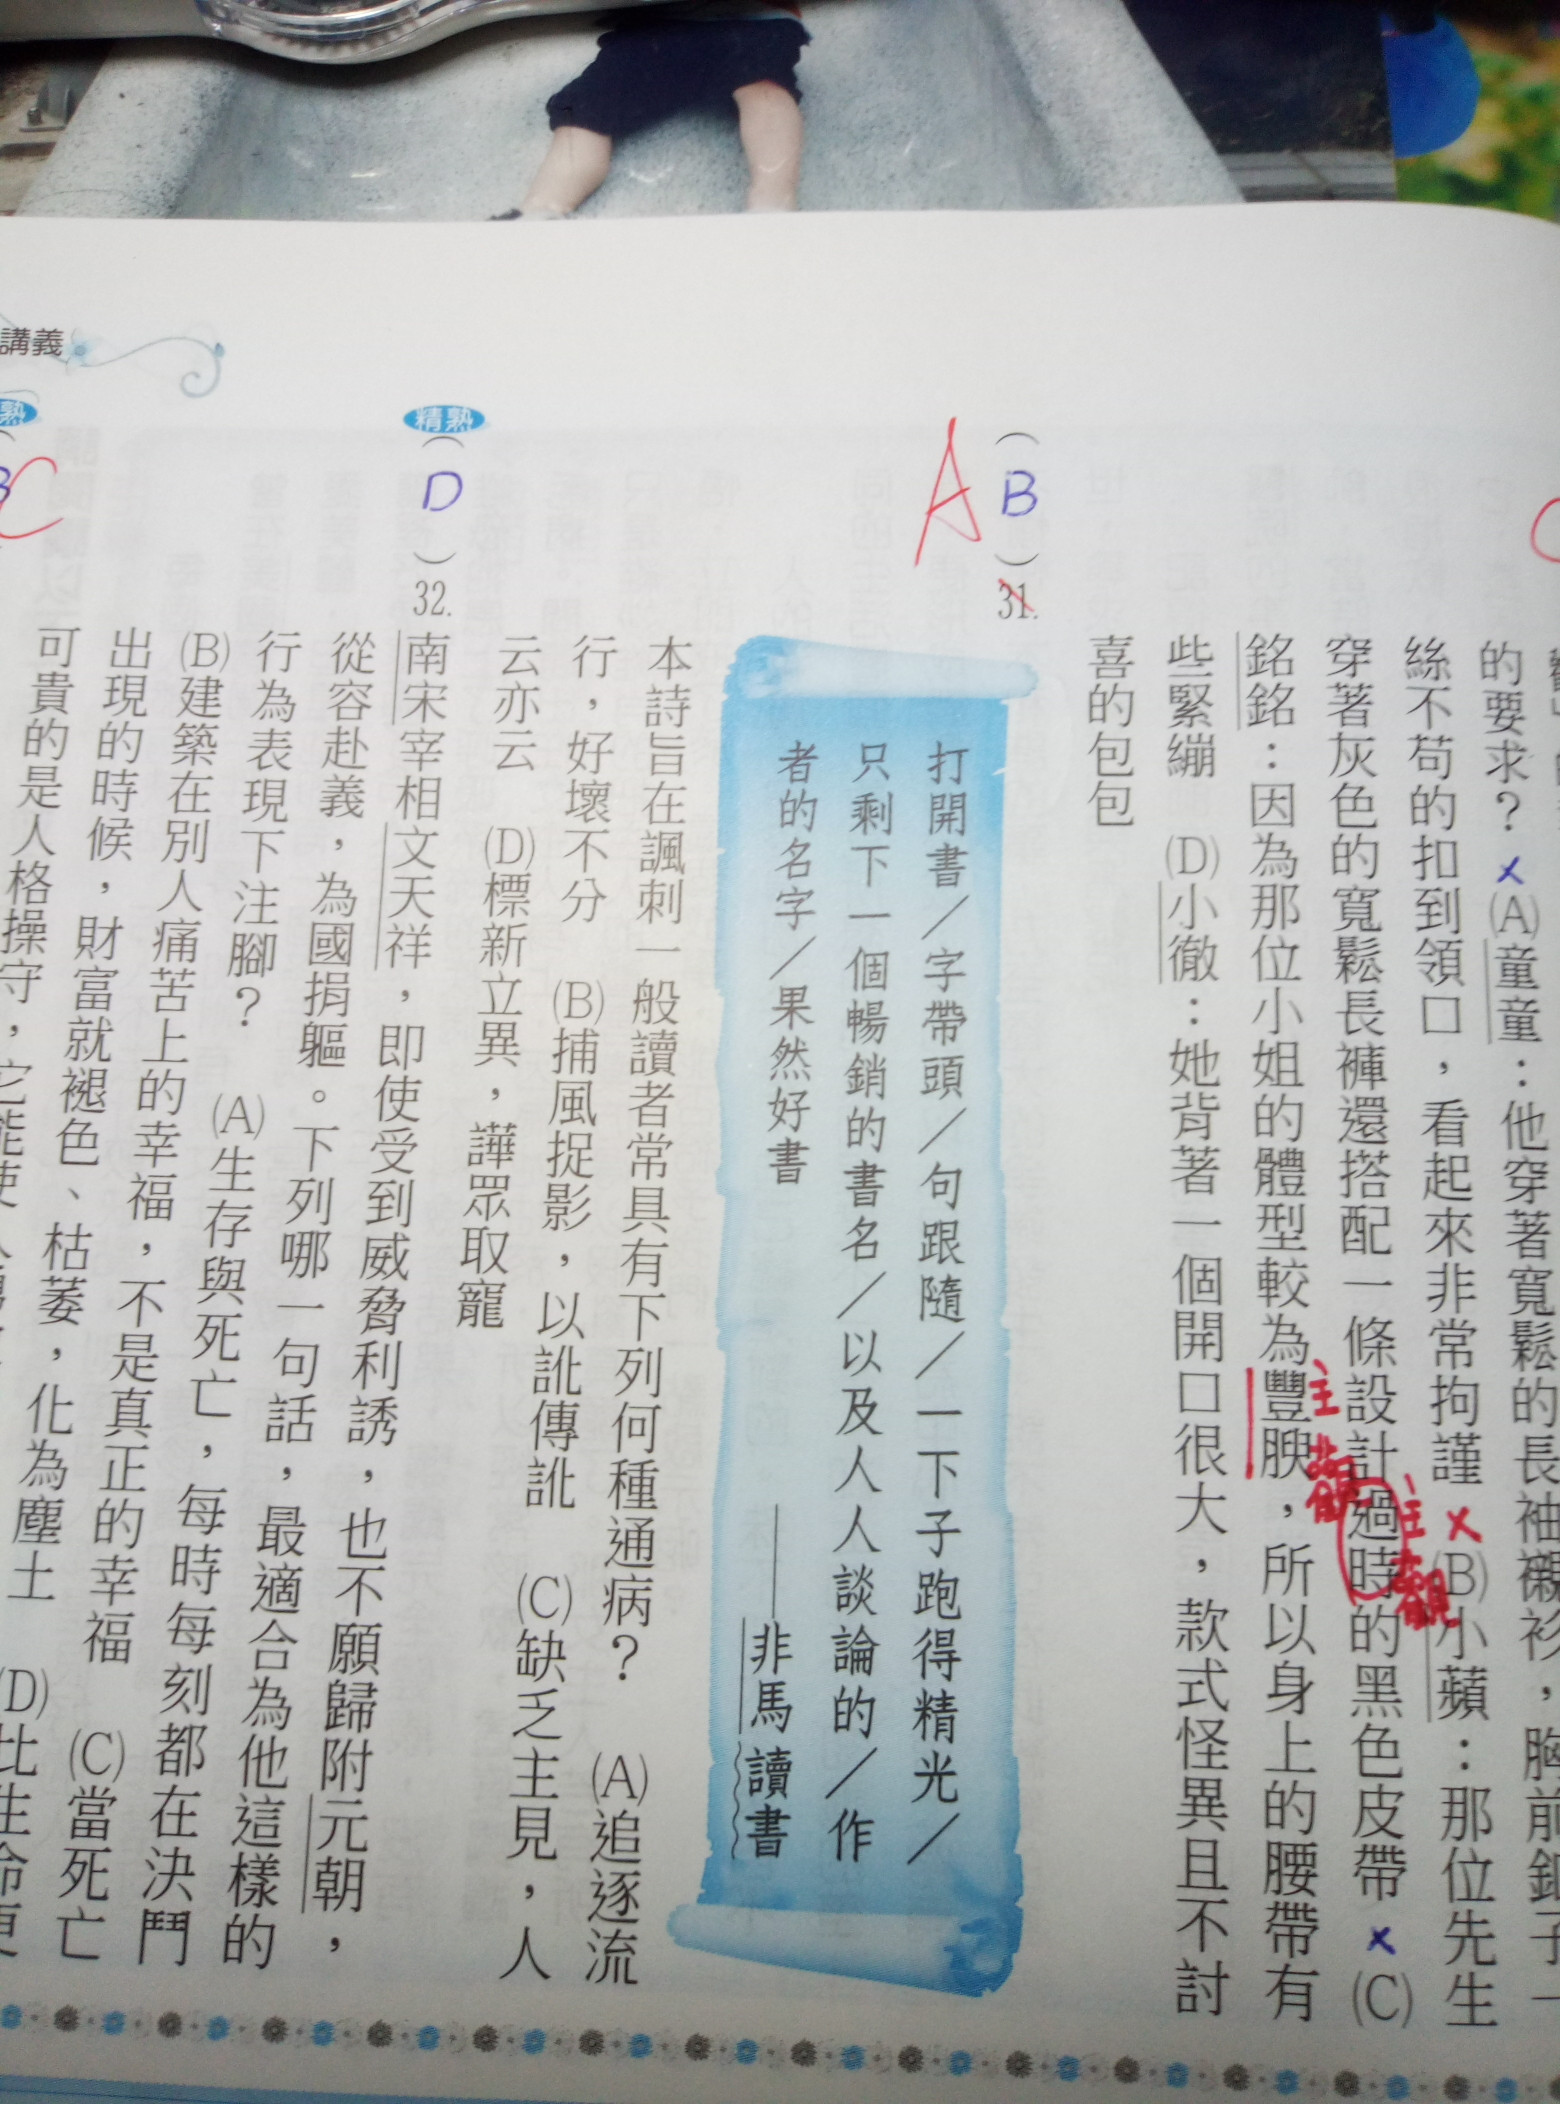 講義
的要求？(A)童童：他穿著寬鬆的長袖襯衫，胸前釦子一
絲不苟的扣到領口，看起來非常拘謹 (B)小蘋：那位先生
穿著灰色的寬鬆長褲還搭配一條設計過時的黑色皮帶 (C)
主觀
主觀
銘銘：因為那位小姐的體型較為豐腴，所以身上的腰帶有
些緊繃 (D)小徹：她背著一個開口很大，款式怪異且不討
喜的包包
A
(B)31.
打開書／字帶頭／句跟隨／一下子跑得精光／
只剩下一個暢銷的書名／以及人人談論的／作
者的名字／果然好書
——非馬讀書
本詩旨在諷刺一般讀者常具有下列何種通病？ (A)追逐流
行，好壞不分 (B)捕風捉影，以訛傳訛 (C)缺乏主見，人
云亦云 (D)標新立異，譁眾取寵
精熟
(D)32.
南宋宰相文天祥，即使受到威脅利誘，也不願歸附元朝，
從容赴義，為國捐軀。下列哪一句話，最適合為他這樣的
行為表現下注腳？ (A)生存與死亡，每時每刻都在決鬥
(B)建築在別人痛苦上的幸福，不是真正的幸福 (C)當死亡
出現的時候，財富就褪色、枯萎，化為塵土 (D)比生命更
可貴的是人格操守，它能使
熟
B
C